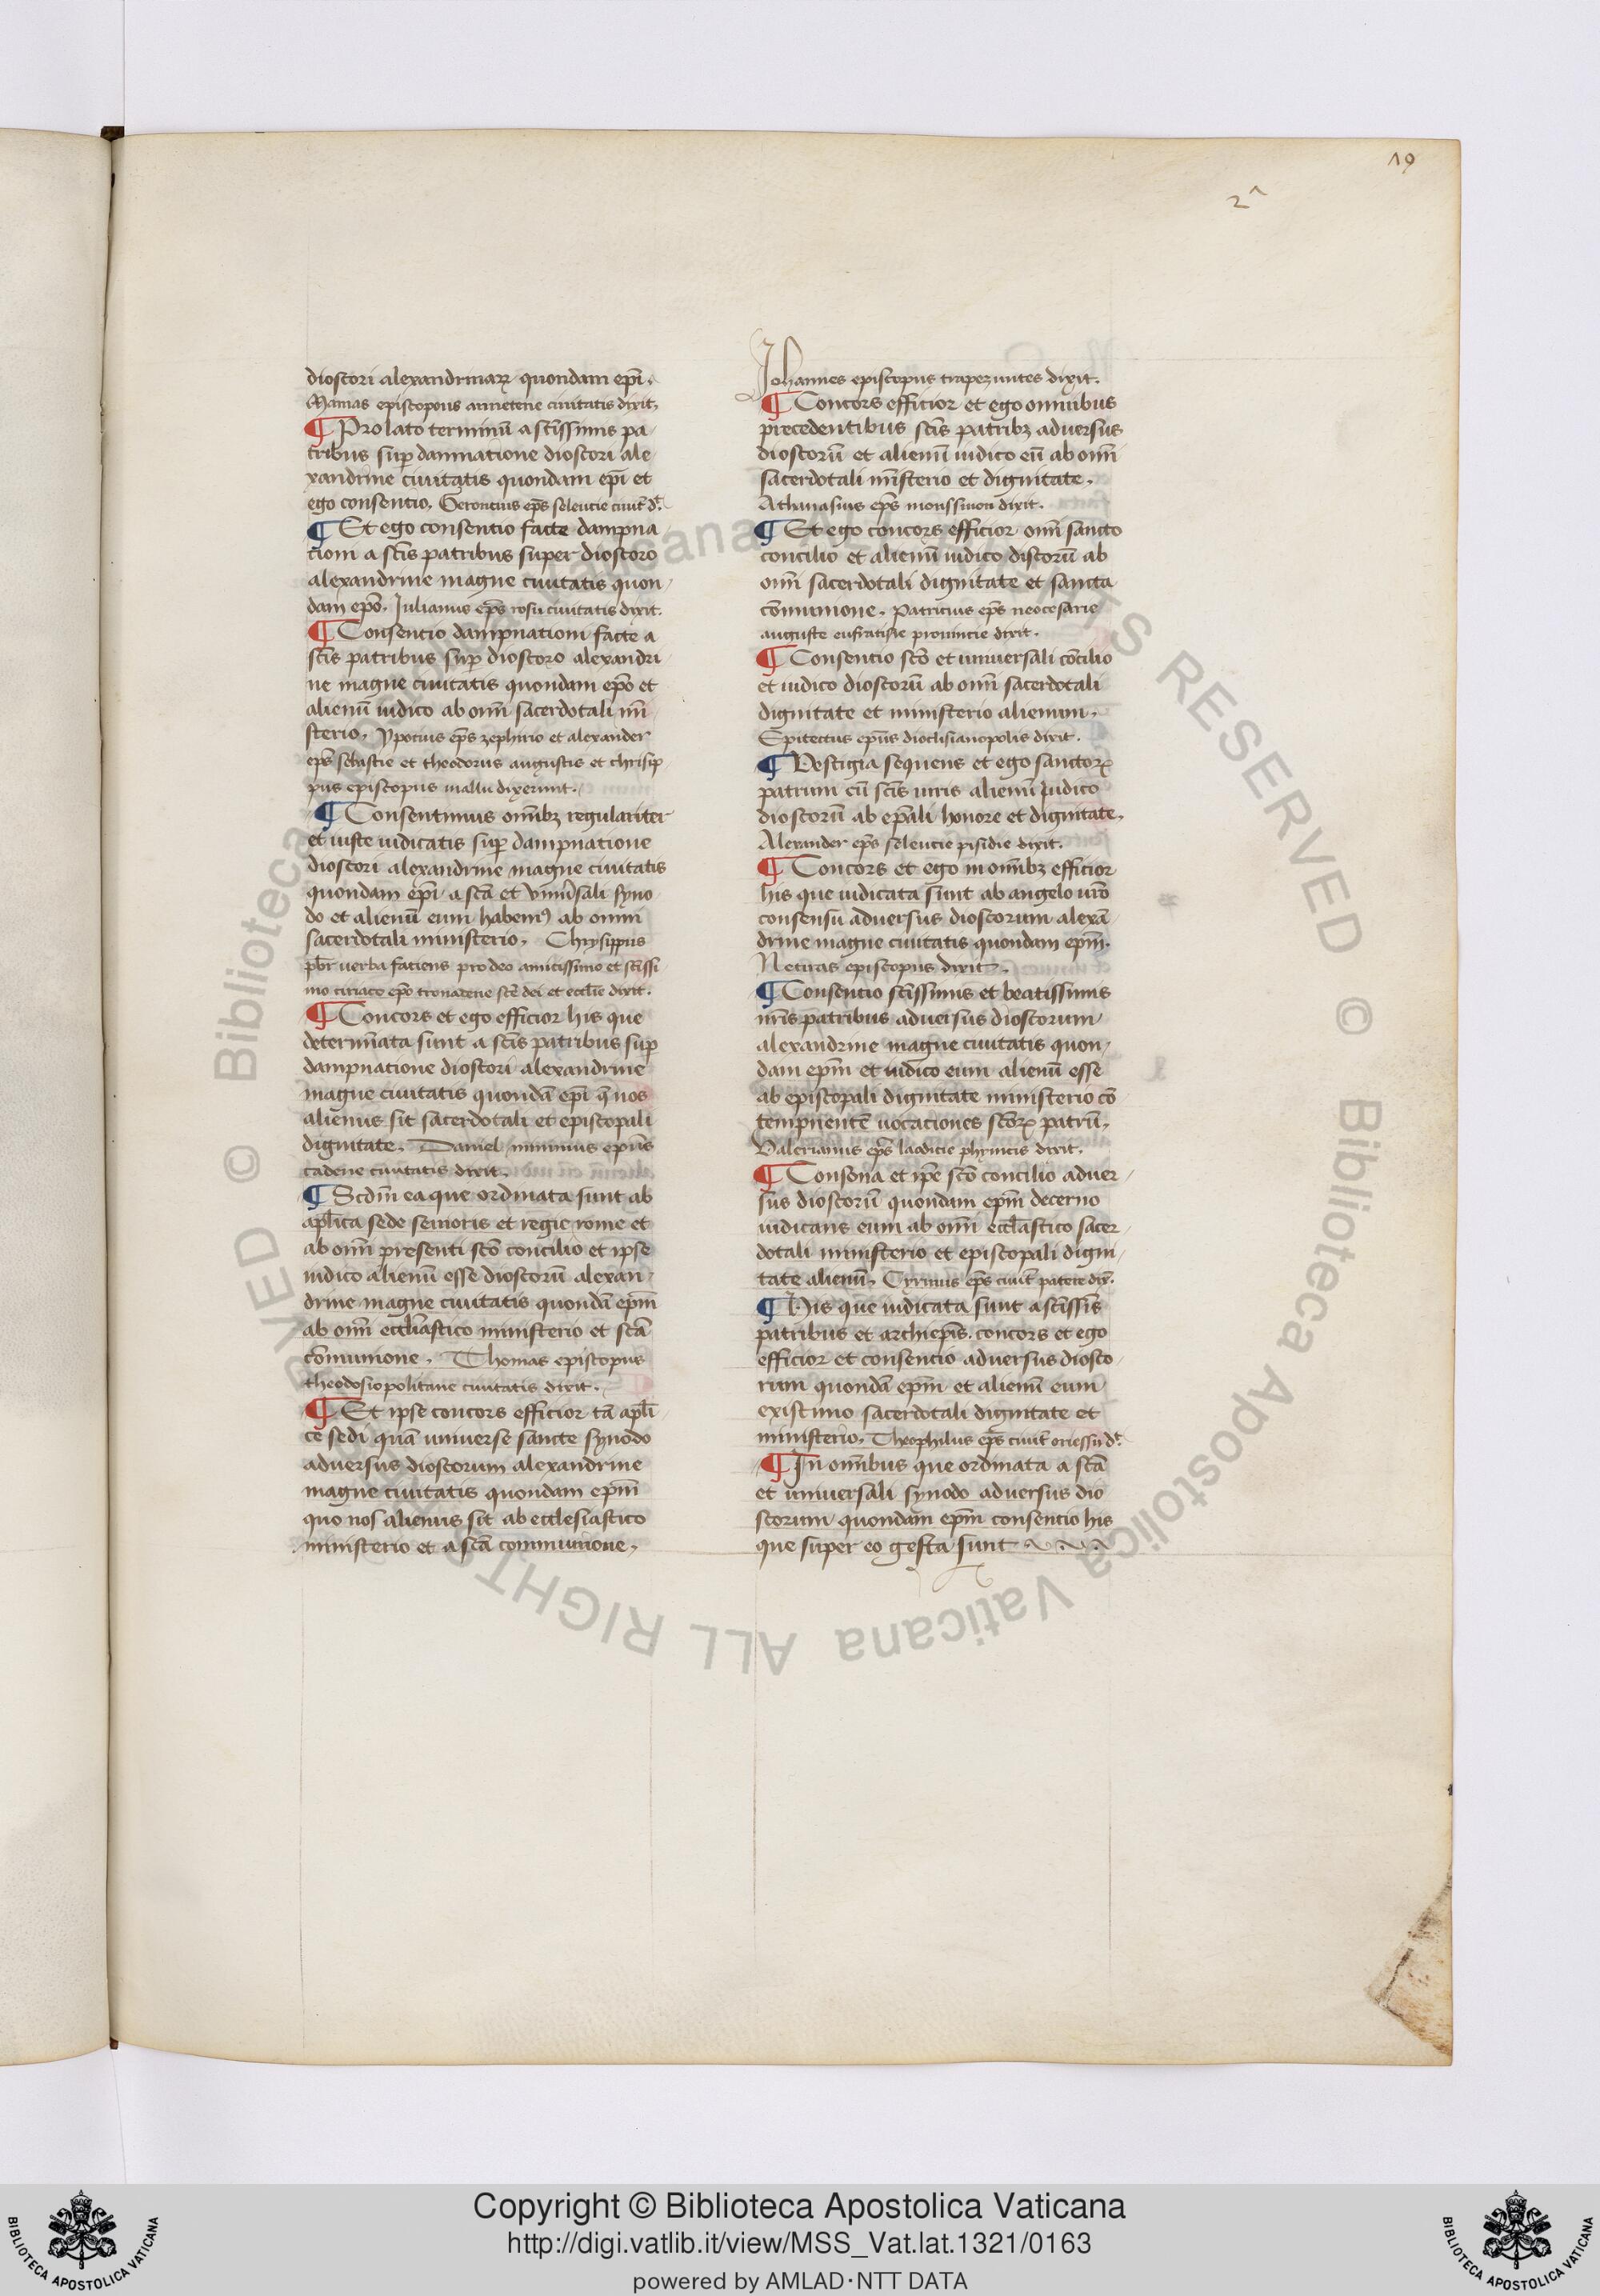 19
21
dioscori alexandrinarꝝ quondam epī.
Mamas episcopous anineterie ciuitatis dixit,
¶ Prolato terminū a sctīssimis pa
tribus suꝑ damnatione dioscori ale
xandrine ciuitatis quondam epī et
ego consentio, Gerontius epūs seleucie ciuit̄ d̄t.
¶ Et ego consentio facte dampna
tioni a sctīs patribus super dioscoro
alexandrine magne ciuitatis quon
dam epō. Iulianus epūs rosii ciuitatis dixit.
¶ Consentio dampnationi facte a
sctīs patribus suꝑ dioscoro alexandri
ne magne ciuitatis quondam epō et
alienū iudico ab om̄i sacerdotali mī
sterio, Ypotius epūs zephirio et alexander
epūs sebastie et theodorus augustis et chrisip
pus episcopus mallu dixerunt.
¶ Consentimus om̄ibꝫ regulariter
et iuste iudicatis suꝑ dampnatione
dioscori alexandrine magne ciuitatis
quondam epī a sctā et vniuersali syno
do et alienū eum habemꝰ ab omni
sacerdotali ministerio, Chrysippus
pbr̄ uerba faciens pro deo amicissimo et sctīssi
mo ciriaco epō tronadene sctē dei et eccl̄ie dixit.
¶ Concors et ego efficior his que
determīata sunt a sctīs patribus suꝑ
dampnatione dioscori alexandrine
magne ciuitatis quondā epī q̄ nos
alienus sit sacerdotali et episcopali
dignitate, Daniel minimus epūs
cadene ciuitatis dixit,
¶ Scdm̄ ea que ordinata sunt ab
apl̄ica sede senioris et regie rome et
ab om̄i presenti sctō concilio et ipse
iudico alienū esse dioscorū alexan
drine magne ciuitatis quondā epm̄
ab om̄i eccl̄iastico ministerio et sctā
cōmunione, Thomas episcopus
theodosiopolitane ciuitatis dixit,
¶ Et ipse concors efficior tā apl̄i
ce sedi quā uniuerse sancte synodo
aduersus dioscorum alexandrine
magne ciuitatis quondam epm̄
quo nos alienus sit ab ecclesiastico
ministerio et a sctā communione,
Iohannes episcopus trapezuntes dixit.
¶ Concors efficior et ego omnibus
precedentibus sctīs patribꝫ aduersus
dioscorū et alienū iudico eū ab om̄i
sacerdotali mīsterio et dignitate,
Athanasius epūs monssinon dixit.
¶ Et ego concors efficior om̄i sancto
concilio et alienū iudico discorū ab
om̄i sacerdotali dignitate et sancta
cōmunione, Patricius epūs neocesarie
auguste eufratisie prouincie dixit.
¶ Consentio sctō et uniuersali cōcilio
et iudico dioscorū ab om̄i sacerdotali
dignitate et ministerio alienum,
Epitectus epūs dioclisianopolis dixit.
¶ Vestigia sequens et ego sanctorꝝ
patrum cū sctīs uiris alienū iudico
dioscorū ab epāli honore et dignitate,
Alexander epūs seleucie pisidie dixit.
¶ Concors et ego in om̄ibꝫ efficior
his que iudicata sunt ab angelo uro
consensu aduersus dioscorum alexā
drine magne ciuitatis quondam epm̄.
Netiras episcopus dixit,
¶ Consentio sctīssimis et beatissimis
nr̄is patribus aduersus dioscorum
alexandrine magne ciuitatis quon
dam epm̄ et iudico eum alienū esse
ab episcopali dignitate ministerio cō
tempnentē uocationes sctōrꝝ patrū,
Valerianus epūs laodicie phynicis dixit,
¶ Consona et ipē sctō concilio aduer
sus dioscorū quondam epm̄ decerno
iudicans eum ab om̄i eccl̄iastico sacer
dotali ministerio et episcopali digni
tate alienū, Cyrinus epūs ciuit̄ patere dix̄.
¶ His que iudicata sunt a sctīssīs
patribus et archiepīs. concors et ego
efficior et consentio aduersus diosco
rum quondā epm̄ et alienū eum
existimo sacerdotali dignitate et
ministerio, Theophilus epūs ciuit̄ oriessii d̄t.
¶ In om̄ibus que ordinata a sctā
et uniuersali synodo aduersus dio
scorum quondam epm̄ consentio his
que super eo gesta sunt
© Biblioteca Apostolica Vaticana ALL RIGHTS RESERVED © Biblioteca Apostolica Vaticana ALL RIGHTS RESERVED
Copyright © Biblioteca Apostolica Vaticana
http://digi.vatlib.it/view/MSS_Vat.lat.1321/0163
powered by AMLAD·NTT DATA
BIBLIOTECA APOSTOLICA VATICANA
BIBLIOTECA APOSTOLICA VATICANA